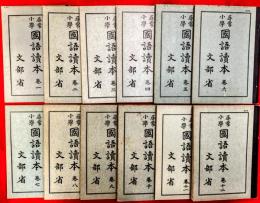 尋常
小學
國語讀本 卷一
文部省
尋常
小學
國語讀本 卷二
文部省
尋常
小學
國語讀本 卷三
文部省
尋常
小學
國語讀本 卷四
文部省
尋常
小學
國語讀本 卷五
文部省
尋常
小學
國語讀本 卷六
文部省
尋常
小學
國語讀本 卷七
文部省
尋常
小學
國語讀本 卷八
文部省
尋常
小學
國語讀本 卷九
文部省
尋常
小學
國語讀本 卷十
文部省
尋常
小學
國語讀本 卷十一
文部省
尋常
小學
國語讀本 卷十二
文部省